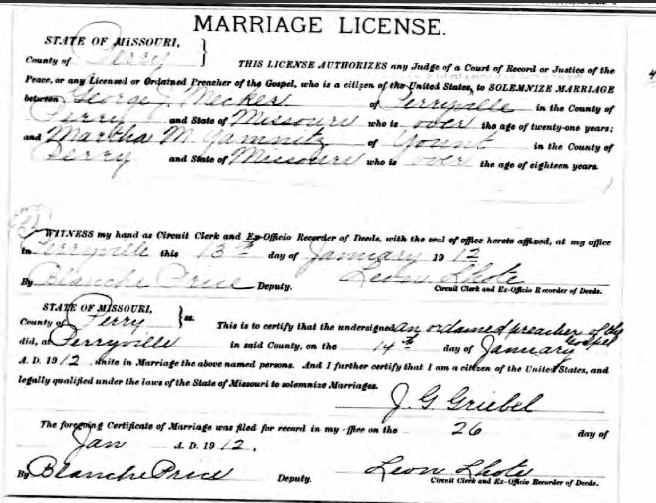 MARRIAGE LICENSE.
STATE OF MISSOURI,
County of Perry
THIS LICENSE AUTHORIZES any Judge of a Court of Record or Justice of the
Peace, or any Licensed or Ordained Preacher of the Gospel, who is a citizen of the United States, to SOLEMNIZE MARRIAGE
between George J. Mecker of Perryville in the County of
Perry and State of Missouri who is over the age of twenty-one years;
and Martha M. Yamnitz of Yount in the County of
Perry and State of Missouri who is over the age of eighteen years.
WITNESS my hand as Circuit Clerk and Ex-Officio Recorder of Deeds, with the seal of office hereto affixed, at my office
in Perryville this 13th day of January 1912
By Blanche Price Deputy. Leon Lhote
Circuit Clerk and Ex-Officio Recorder of Deeds.
STATE OF MISSOURI,
County of Perry ss. This is to certify that the undersigned an ordained preacher of the Gospel
did, at Perryville in said County, on the 14th day of January
A. D. 1912, unite in Marriage the above named persons. And I further certify that I am a citizen of the United States, and
legally qualified under the laws of the State of Missouri to solemnize Marriages.
J. G. Griebel
The foregoing Certificate of Marriage was filed for record in my office on the 26 day of
Jan A. D. 1912.
By Blanche Price Deputy. Leon Lhote
Circuit Clerk and Ex-Officio Recorder of Deeds.